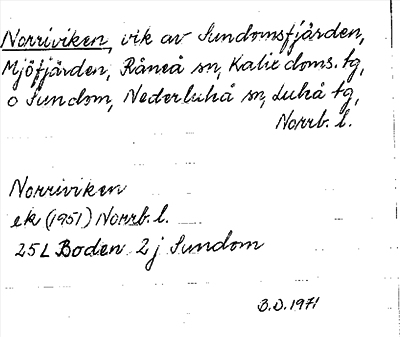 Norriviken, vik av Sundomsfjärden,
Mjöfjärden, Råneå sn, Kalix doms. tg,
o Sundom, Nederluleå sn, Luleå tg,
Norrb. l.
Norriviken
ek (1951) Norrb. l.
25L Boden 2j Sundom
B.D. 1971